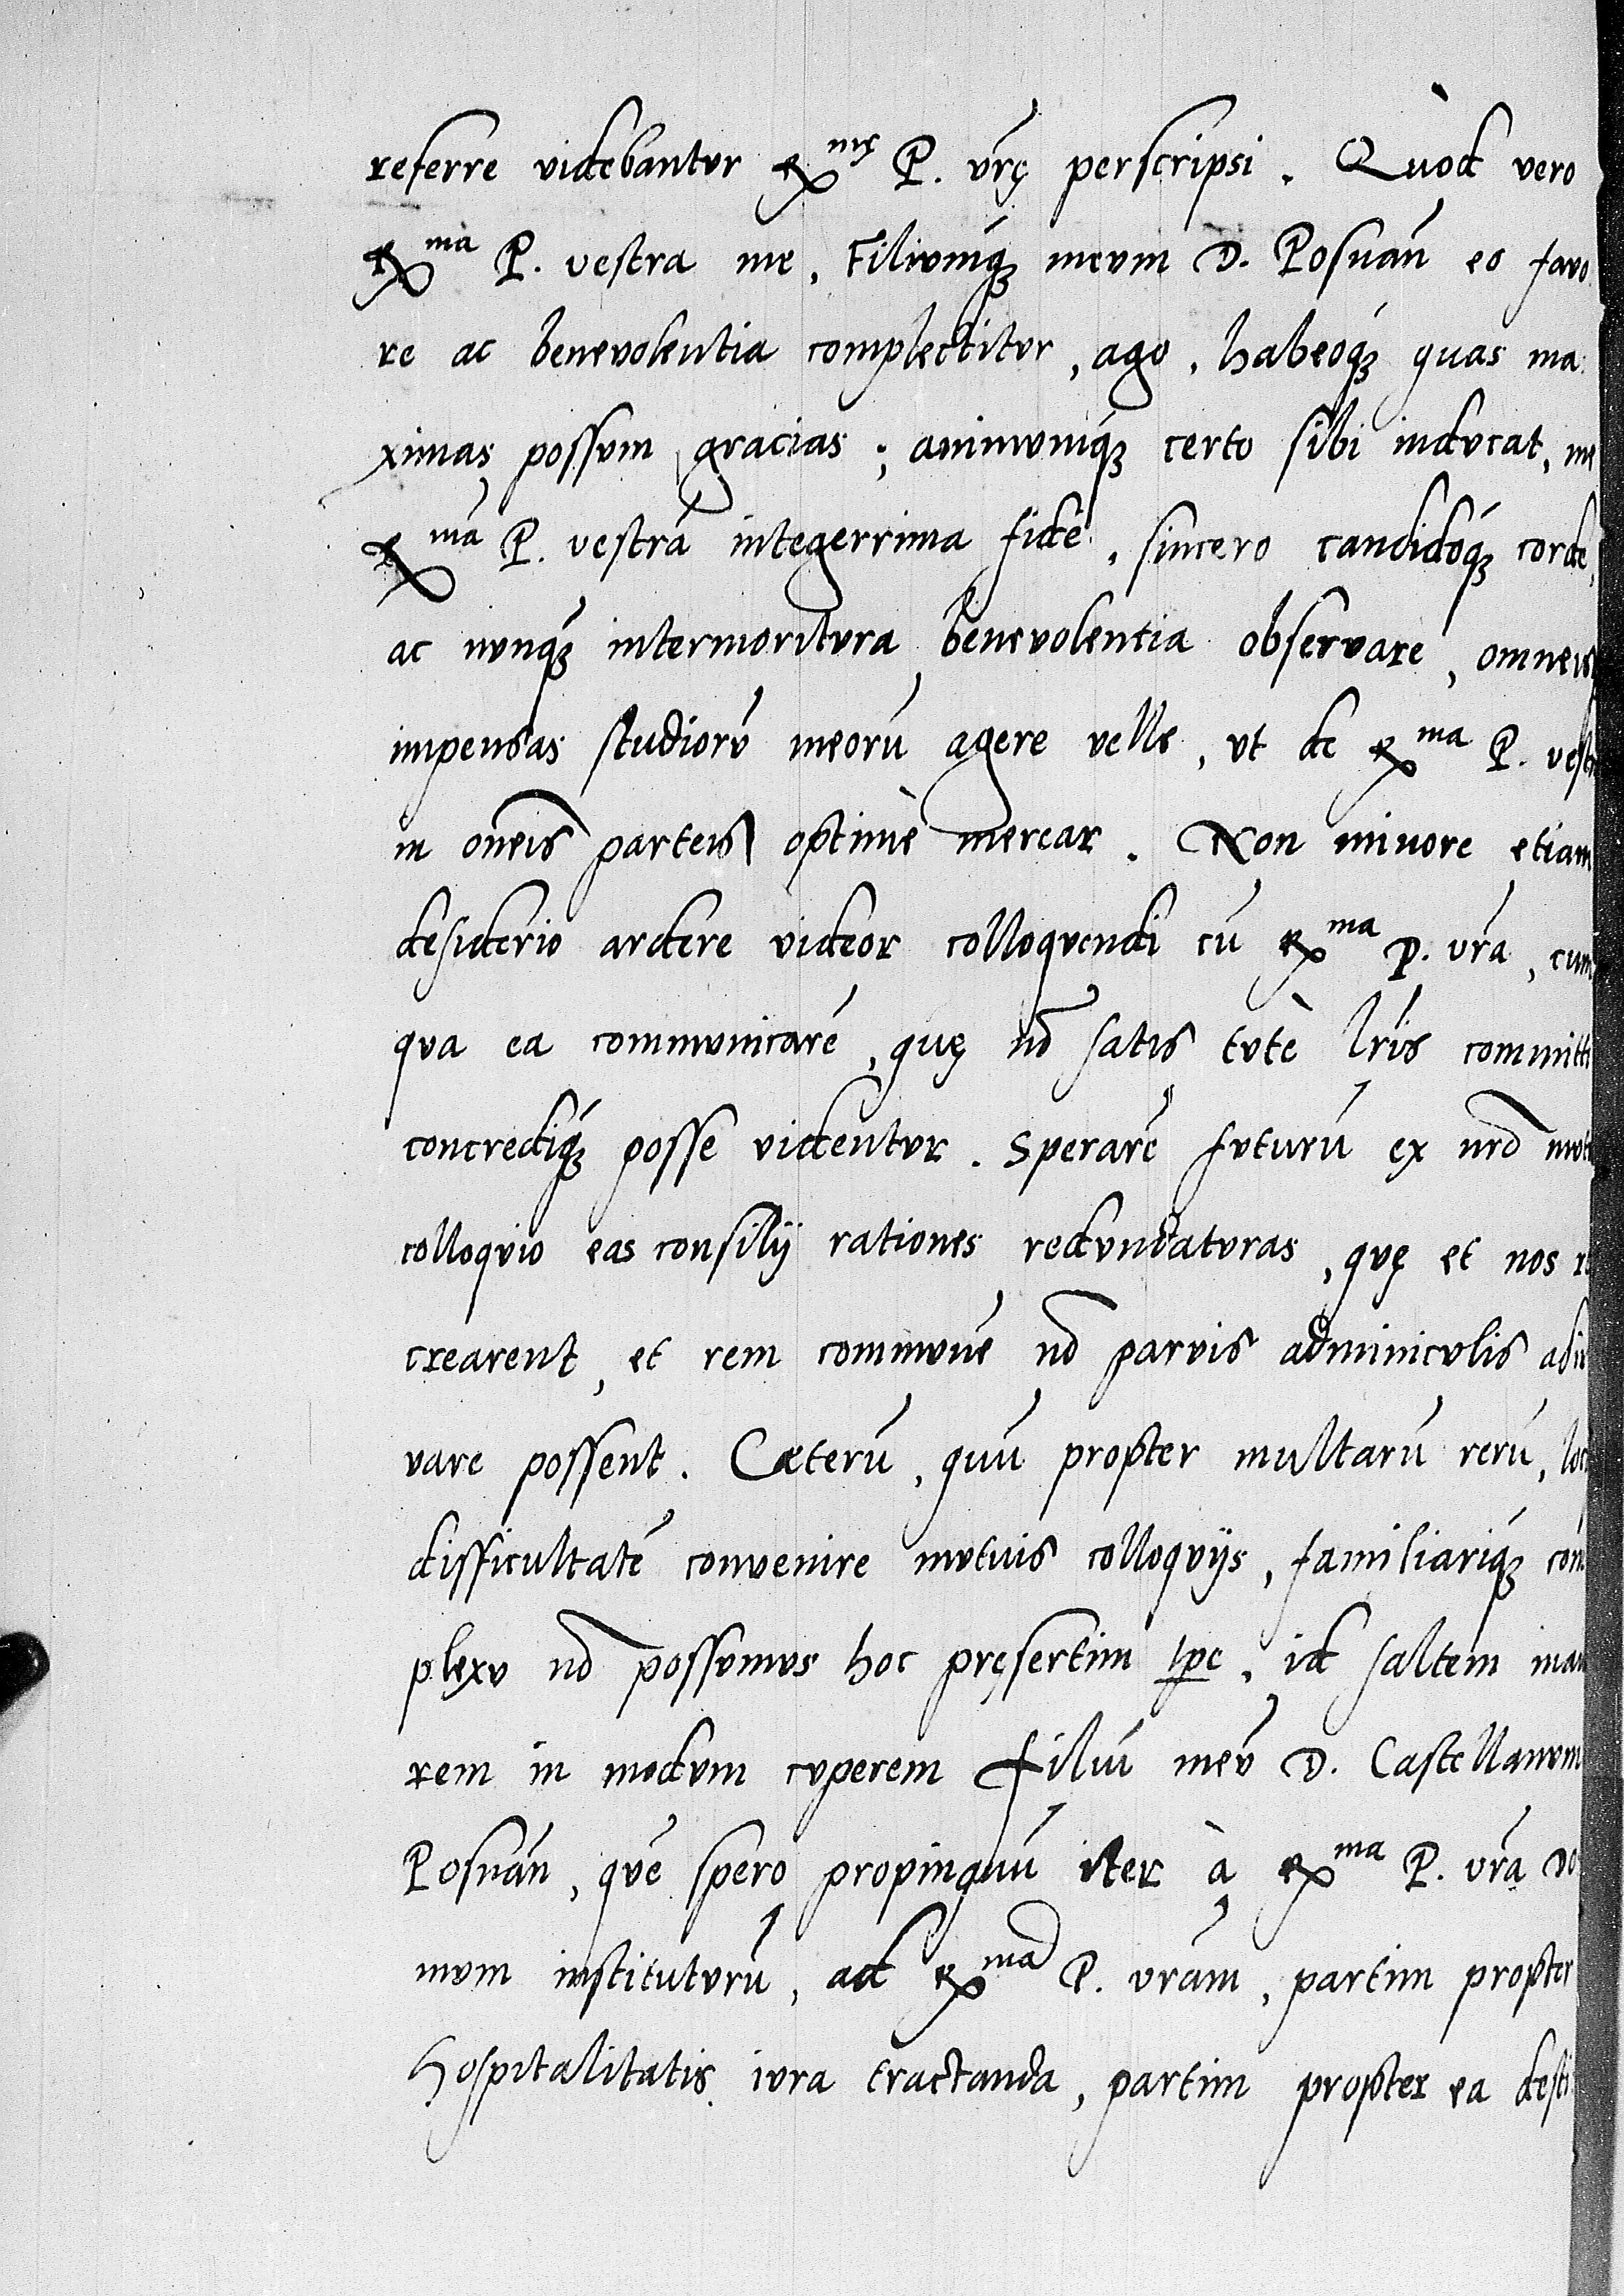 referre videbantur Exmę P. vrę perscripsi. Quòd vero
Exma P. vestra me, Filiumq́ꝫ meum D. Posnań eo favo
re ac benevolentia complectitur, ago, habeoq́ꝫ quas ma
ximas possum gracias; animumq́ꝫ certo sibi inducat, me
Exmā P. vestrā integerrima fide, sincero candidoq́ꝫ corde,
ac nunq́ꝫ intermoritura benevolentia observare, omneis
impensas studiorū meorū agere velle, ut de Exma P. vestra
in oñeis parteis optimè merear. Non minore etiam
desiderio ardere videor colloquendi cū Exma P. vrā, cum
qua ea communicarē, quę nō satis tutè lr̄is committi
concrediq́ꝫ posse videntur. Sperarē futurū ex nr̄o
colloquio eas consilij rationes redundaturas, quę et nos re
crearent, et rem communē nō parvis adminiculis adiu
vare possent. Cæterū, quū propter multarū rerū,
difficultatē convenire mutuis colloquijs, familiariq́ꝫ com
plexu nō possumus hoc pręsertim tpe, id saltem
rem in modum cuperem Filiū meū D. Castellanum
Posnań, quē spero propinquū iter à Exma P. vrā do
mum instituturū, ad Exmā P. vram, partim propter
Hospitalitatis iura tractanda, partim propter ea desti